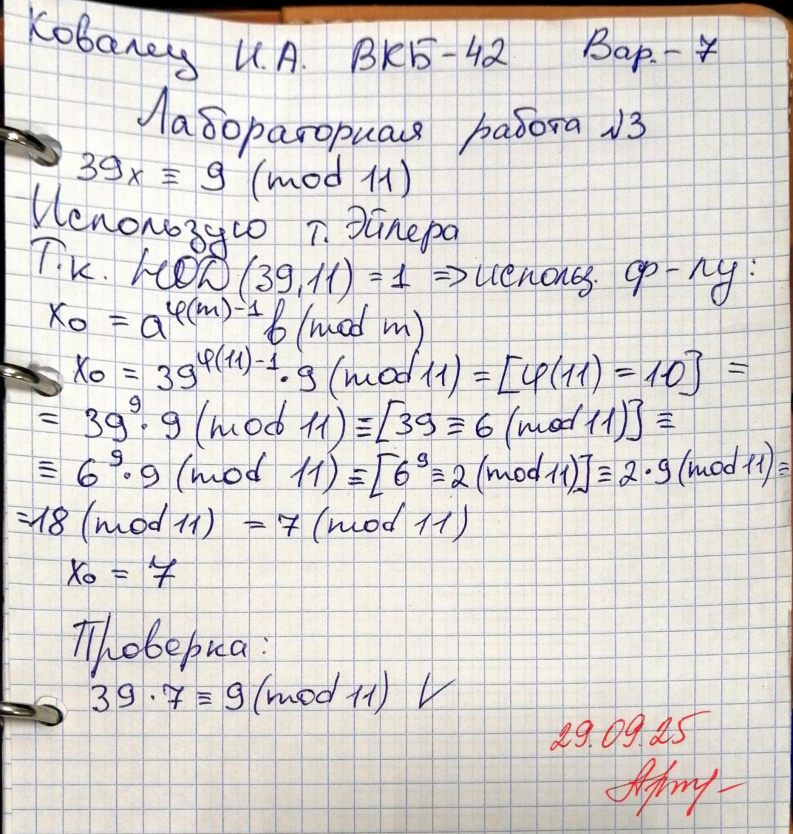 Ковалец И.А. ВКБ-42 Вар.-7
Лабораторная работа №3
39x ≡ 9 (mod 11)
Использую т. Эйлера
Т.к. НОД (39,11) = 1 => использ. ф-лу:
x₀ = a^(φ(m)-1) b (mod m)
x₀ = 39^(φ(11)-1) · 9 (mod 11) = [φ(11) = 10] =
= 39⁹ · 9 (mod 11) ≡ [39 ≡ 6 (mod 11)] ≡
≡ 6⁹ · 9 (mod 11) ≡ [6⁹ ≡ 2 (mod 11)] ≡ 2 · 9 (mod 11) =
= 18 (mod 11) = 7 (mod 11)
x₀ = 7
Проверка:
39 · 7 ≡ 9 (mod 11) ✓
29.09.25